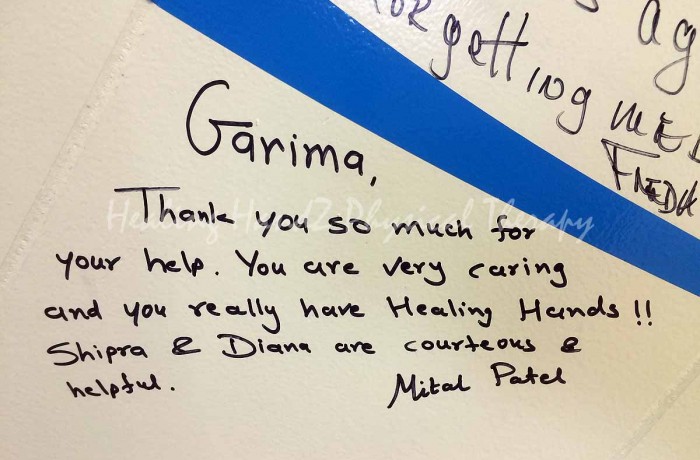 getting me
Garima,
Thank you so much for
your help. You are very caring
and you really have Healing Hands !!
Shipra & Diana are courteous &
helpful.
Mital Patel
Healing HandZ Physical Therapy